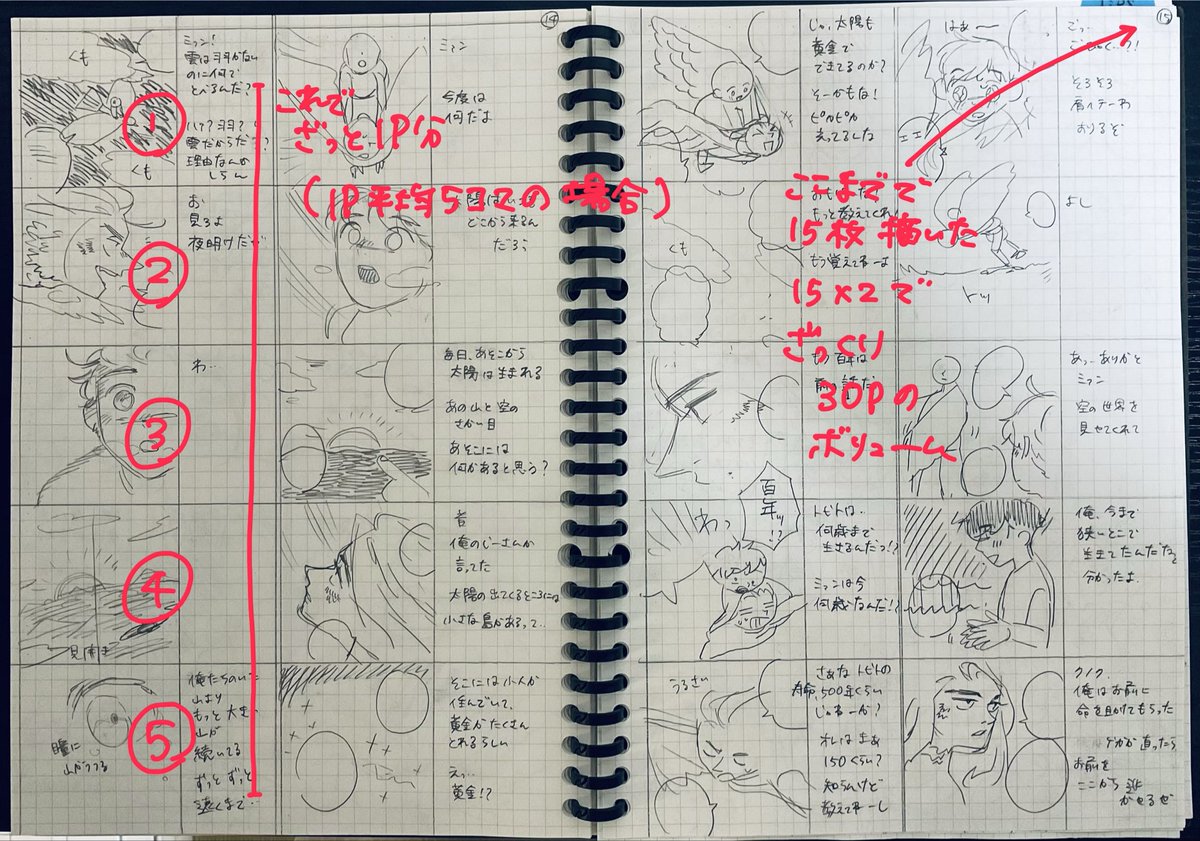 14
くも
ミァン!
雲は羽がない
のに何で
とべるんだ?
ハァ?羽?
雲だからだろ?
理由なんか
しらん
くも
①
お
見ろよ
夜明けだ
②
わ…
③
④
見開き
俺たちのいた
山より
もっと大きい
山が
続いてる
ずっとずっと
遠くまで…
瞳に
山がうつる
⑤
これで
ざっと1P分
(1P平均5コマの場合)
ミァン
今度は
何だよ
太陽はいつも
どこから来るん
だろう
毎日、あそこから
太陽は生まれる
あの山と空の
さかい目
あそこには
何があると思う?
昔
俺のじーさんが
言ってた
太陽の出てくるところには
小さな島があるって…
そこには小人が
住んでいて、
黄金がたくさん
とれるらしい
えっ…
黄金!?
15
じゃ、太陽も
黄金で
できてるのか?
そーかもな!
ピカピカ
光ってるしな
もっと教えてくれ
もう覚えてねーよ
くも
もう百年は
前の話だ
百年ッ!?
わっ
トビトは…
何歳まで
生きるんだっ!?
ミァンは今
何歳なんだ!?
うるさい
さあな トビトの
寿命500年くらい
じゃねーか?
オレはまあ
150くらい?
知らんけど
教えてねーし
ここまでで
15枚描いた
15×2で
ざっくり
30Pの
ボリューム
はぁ〜
そろそろ
肩イテーわ
おりるぞ
よし
トッ
あっ…ありがと
ミァン
空の世界を
見せてくれて
俺、今まで
狭いとこで
生きてたんだな
分かったよ
クノク、
俺はお前に
命を助けてもらった
ケガが直ったら
お前を
ここから逃
がせるぜ